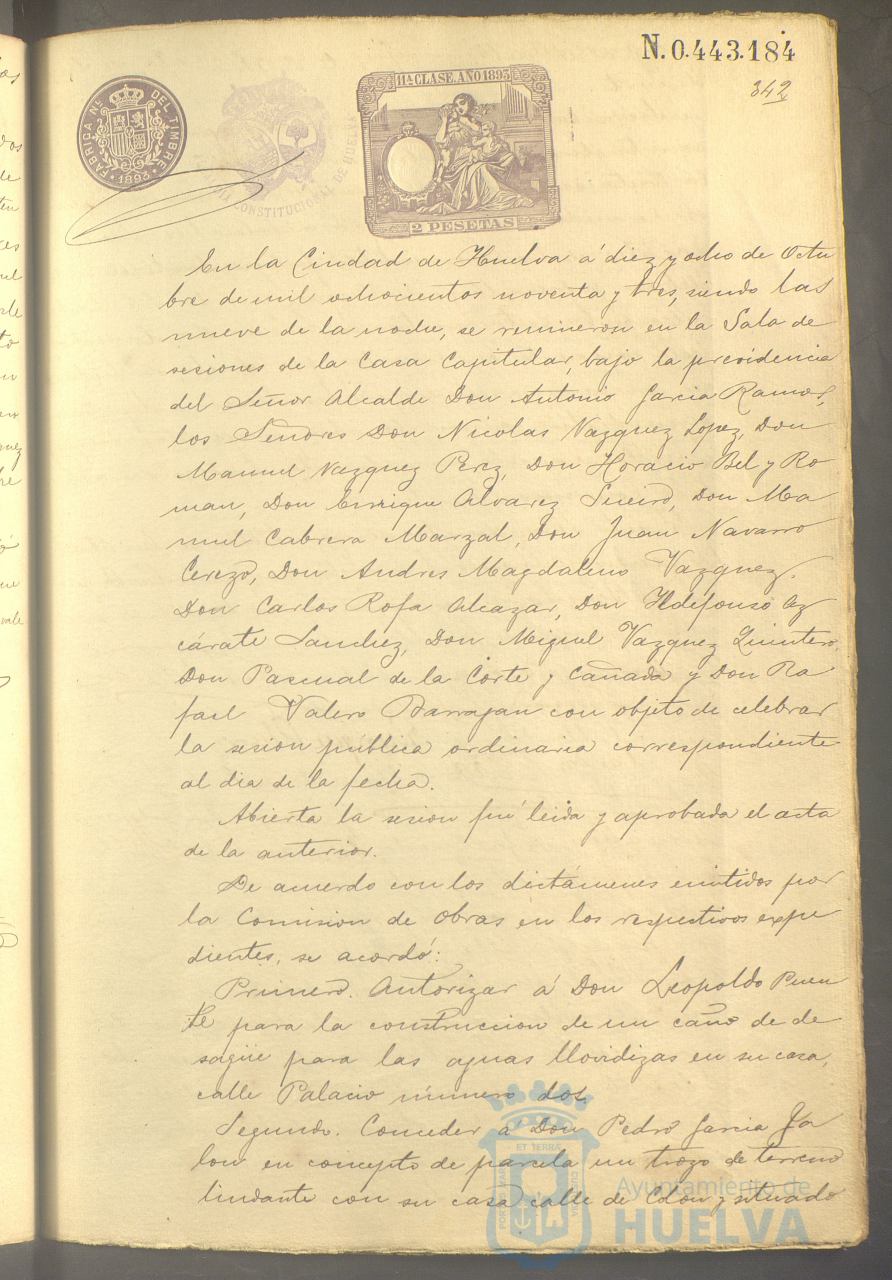 N. 0.443.184
342
FABRICA Nl. DEL TIMBRE
1893
CONSTITUCIONAL DE HUELVA
11ª CLASE. AÑO 1893
2 PESETAS
En la Ciudad de Huelva á diez y ocho de Octu
bre de mil ochocientos noventa y tres, siendo las
nueve de la noche, se reunieron en la Sala de
sesiones de la Casa Capitular, bajo la presidencia
del Señor Alcalde Don Antonio Garcia Ramos,
los Señores Don Nicolas Vazquez Lopez, Don
Manuel Vazquez Perez, Don Horacio Bel y Ro
man, Don Enrique Alvarez Sueiro, Don Ma
nuel Cabrera Marzal, Don Juan Navarro
Cerezo, Don Andres Magdaleno Vazquez.
Don Carlos Rofa Alcazar, Don Ildefonso Az
cárate Sanchez, Don Miguel Vazquez Quintero,
Don Pascual de la Corte y Cañada y Don Ra
fael Valero Barragan con objeto de celebrar
la sesion pública ordinaria correspondiente
al dia de la fecha.
Abierta la sesion fué leida y aprobada el acta
de la anterior.
De acuerdo con los dictámenes emitidos por
la Comision de Obras en los respectivos expe
dientes, se acordó:
Primero. Autorizar á Don Leopoldo Puen
te para la construccion de un caño de de
sagüe para las aguas llovidizas en su casa,
calle Palacio número dos.
Segundo. Conceder á Don Pedro Garcia Ja
lon en concepto de parcela un trozo de terreno
lindante con su casa calle de Colon y situado
ET TERRA
Ayuntamiento de
HUELVA